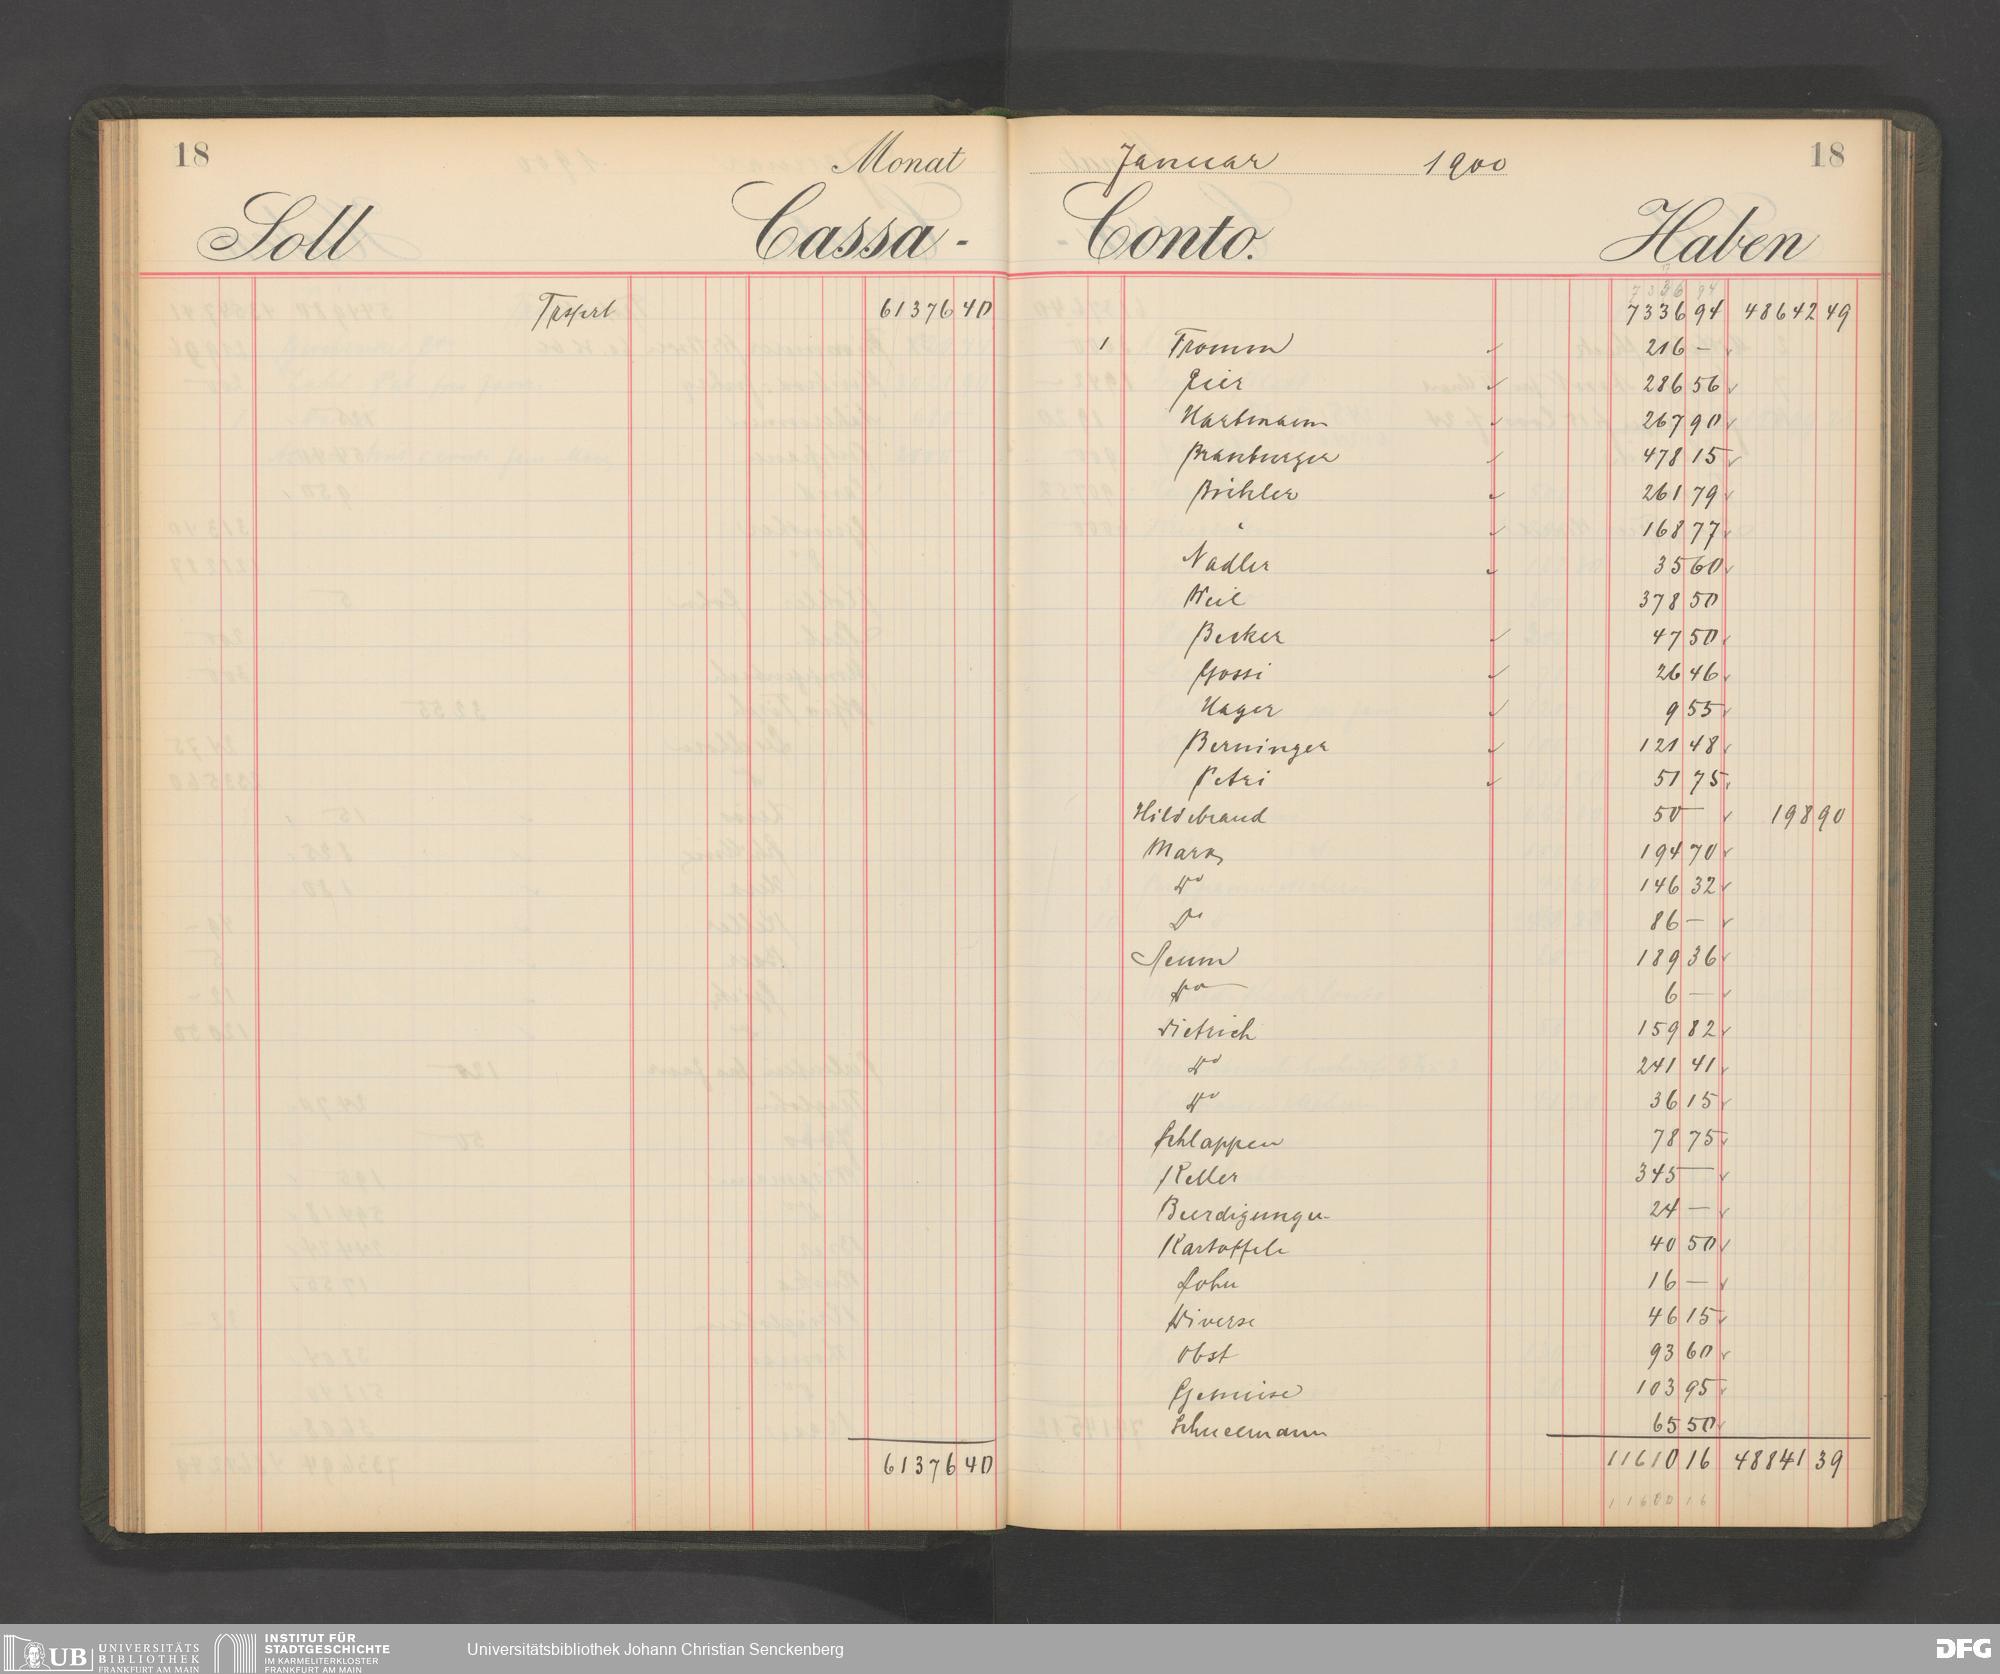 18
Monat
Soll Cassa -
Trsprt 61376 40
61376 40
Januar 1900 18
Conto. Haben
7336 94
7336 94 48642 49
1 Fromm 216 —
Hartmann 267 90
Branburger 478 15
Bühler 261 79
" 168 77
Nadler 35 60
Weil 378 50
Becker 47 50
Gossi 26 46
Hager 9 55
Berninger 121 48
Petri 51 75
Hildebrand 50 — 198 90
Marx 194 70
do 146 32
do 86 —
189 36
do 6 —
Dietrich 159 82
do 241 41
do 36 15
Schlappen 78 75
Keller 345 —
Beerdigungen 24 —
Kartoffeln 40 50
Lohn 16 —
Diverse 46 15
Obst 93 60
Gemüse 103 95
Schneemann 65 50
11610 16 48841 39
11600 16
UB UNIVERSITÄTS
BIBLIOTHEK
FRANKFURT AM MAIN
INSTITUT FÜR
STADTGESCHICHTE
IM KARMELITERKLOSTER
FRANKFURT AM MAIN
Universitätsbibliothek Johann Christian Senckenberg
DFG